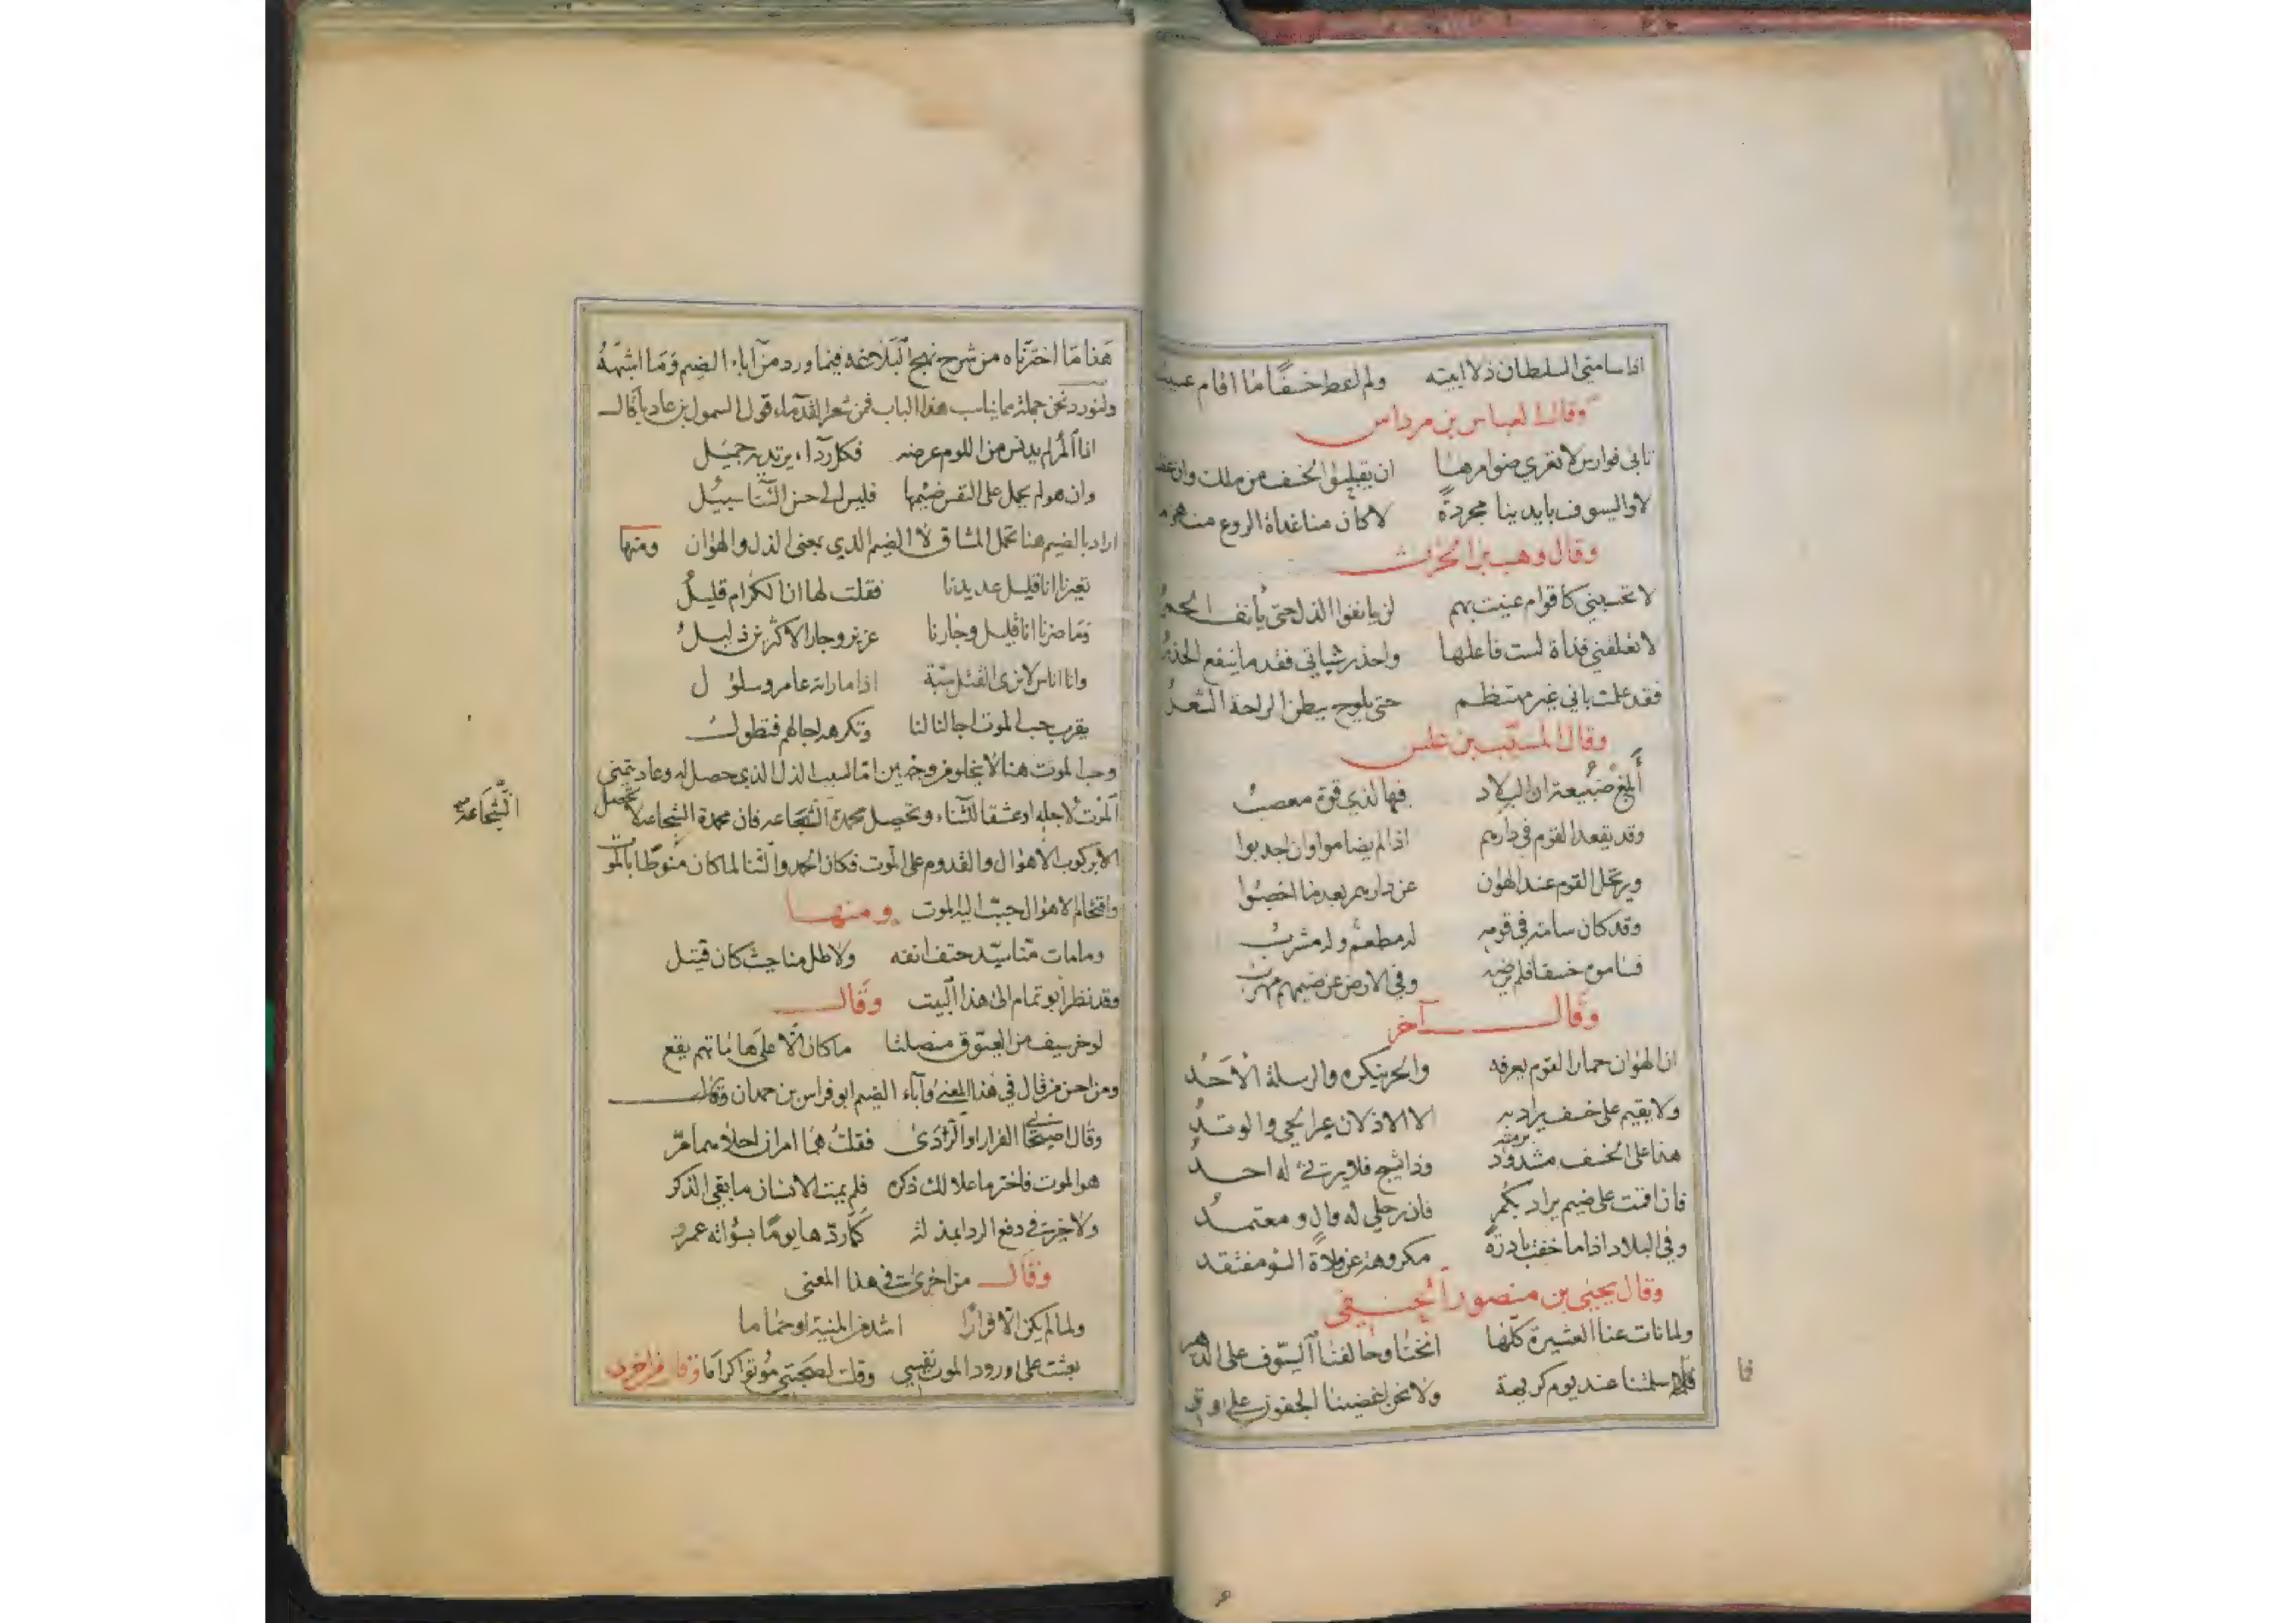 اذا سامني السلطان ذلا ابيته ولم اعط خسفًا ما اقام عسيب
وقال العباس بن مرداس
تابى فوارس لا تعرى ضوامرها ان يقبلوا الخسف من ملك وان عظما
لا والسيوف بايدينا مجردةً لا كان منا غداة الروع منهزما
وقال وهب بن الحرث
لا تحسبني كاقوام عبثت بهم لن يانفوا الذل حتى يأنف الحمر
لا تعلقني قذاة لست فاعلها واحذر شباتي فقدما ينفع الحذر
فقد علمت باني غير مهتظم حتى يلوح ببطن الراحة الشعر
وقال المسيّب بن علس
أبلغ ضبيعة ان البلاد فيها لذي قوة معصب
وقد يقعد القوم في دارهم اذا لم يضاموا وان اجدبوا
ويرتحل القوم عند الهوان عن دارهم بعد ما اخصبوا
وقد كان سامة في قومه له مطعم وله مشرب
فساموه خسفا فلم يرضه وفي الارض عن ضيمهم مهرب
وقال آخر
ان الهوان حمار القوم يعرفه والحر ينكره والرسلة الأحد
ولا يقيم على خسف يراد به الا الاذلان عير الحي والوتد
هذا على الخسف مشدود برمته وذا يشج فلا يرثي له احد
فان اقمت على ضيم يراد بكم فان رحلي له وال ومعتمد
وفي البلاد اذا ما خفت بادرةً مكروهة عن ولاة السوء مفتقد
وقال يحيى بن منصور الحنفي
ولما نات عنا العشيرة كلها انخنا وحالفنا السيوف على الدهر
فما اسلمتنا عند يوم كريهة ولا نحن اغضينا الجفون على وتر
فا
هذا ما اخترناه من شرح نهج البلاغه فيما ورد من آباء الضيم وما اشبهه
ولنورد نحن جملة مما يناسب هذا الباب فمن شعر القدماء قول السمول بن عاديا قال
اذا المرء لم يدنس من اللوم عرضه فكل رداء يرتديه جميل
وان هو لم يحمل على النفس ضيمها فليس الى حسن الثنا سبيل
اراد بالضيم هنا تحمل المشاق لا الضيم الذي بمعنى الذل والهوان ومنها
تعيرنا انا قليل عديدنا فقلت لها ان الكرام قليل
وما ضرنا انا قليل وجارنا عزيز وجار الاكثرين ذليل
وانا اناس لا نرى القتل سبة اذا ما راته عامر وسلول
يقرب حب الموت اجالنا لنا وتكرهه اجالهم فتطول
وحب الموت هنا لا يخلو من وجهين اما لسبب الذل الذي حصل له وعاد يتمنى
الموت لاجله او عشقا للثناء وتحصل محمدة الشجاعه فان محمدة الشجاعه لا تحصل
الشجاعة
الا بركوب الاهوال والقدوم على الموت فكان الحمد والثنا لما كان منوطا بالموت
واقتحام الاهوال حبب اليه الموت ومنها
وما مات منا سيد حتف انفه ولا طل منا حيث كان قتيل
وقد نظر ابو تمام الى هذا البيت وقال
لو خر سيف من العيوق منصلتا ما كان الا على هاماتهم يقع
ومن احسن من قال في هذا المعنى وآباء الضيم ابو فراس بن حمدان وقال
وقال اصيحابي الفرار او الردى فقلت هما امران احلاهما مرّ
هو الموت فاختر ما علا لك ذكره فلم يمت الانسان ما بقي الذكر
ولا خير في دفع الردا بمذلة كما ردها يومًا بسواته عمرو
وقال من اخرى في هذا المعنى
ولما لم يكن الا فرارًا اشد من المنية او حماما
بعثت على ورود الموت نفسي وقلت لصحبتي موتوا كراما وقال من اخرى